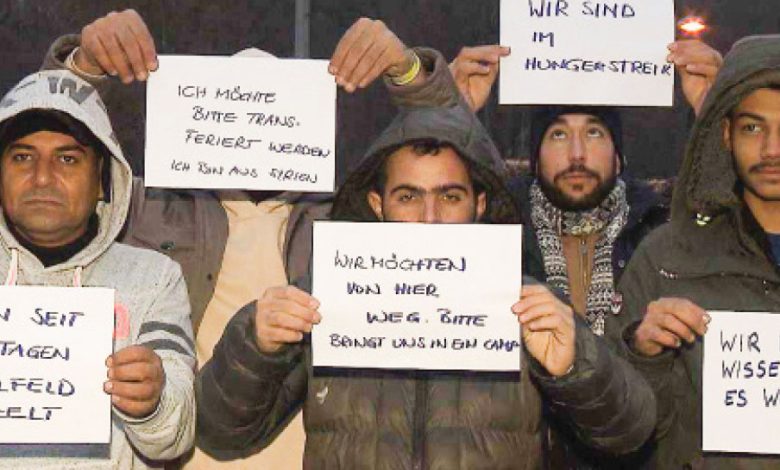 WIR SIND
IM
HUNGERSTREIK
ICH MÖCHTE
BITTE TRANS-
FERIERT WERDEN
ICH BIN AUS SYRIEN
WIR MÖCHTEN
VON HIER
WEG. BITTE
BRINGT UNS IN EIN CAMP
N SEIT
TAGEN
LFELD
ELT
WIR
WISSE
ES W